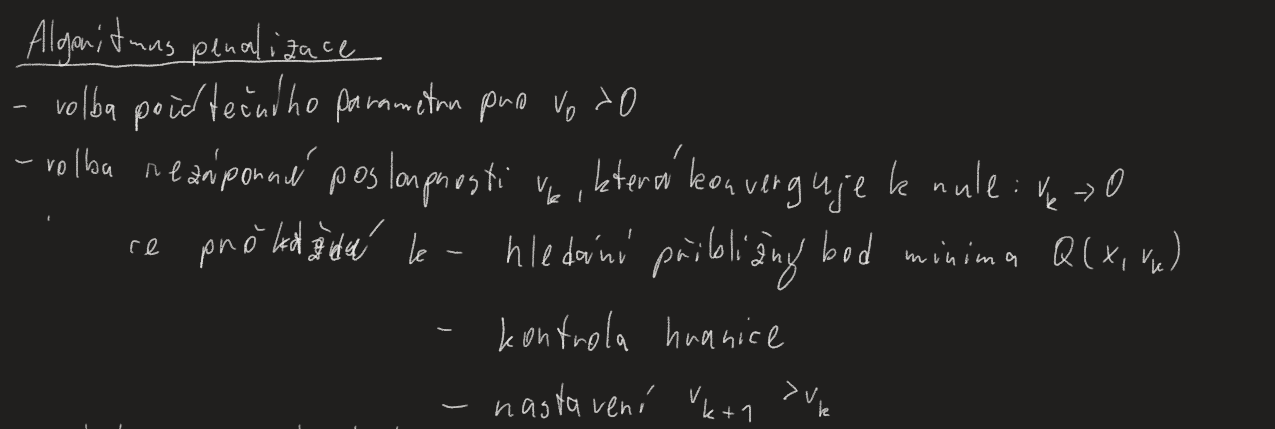 Algoritmus penalizace
- volba počátečního parametru pro v₀ > 0
- volba nezáporné posloupnosti vₖ, která konverguje k nule: vₖ → 0
pro každé k - hledání přibližný bod minima Q(x, vₖ)
- kontrola hranice
- nastavení vₖ₊₁ > vₖ